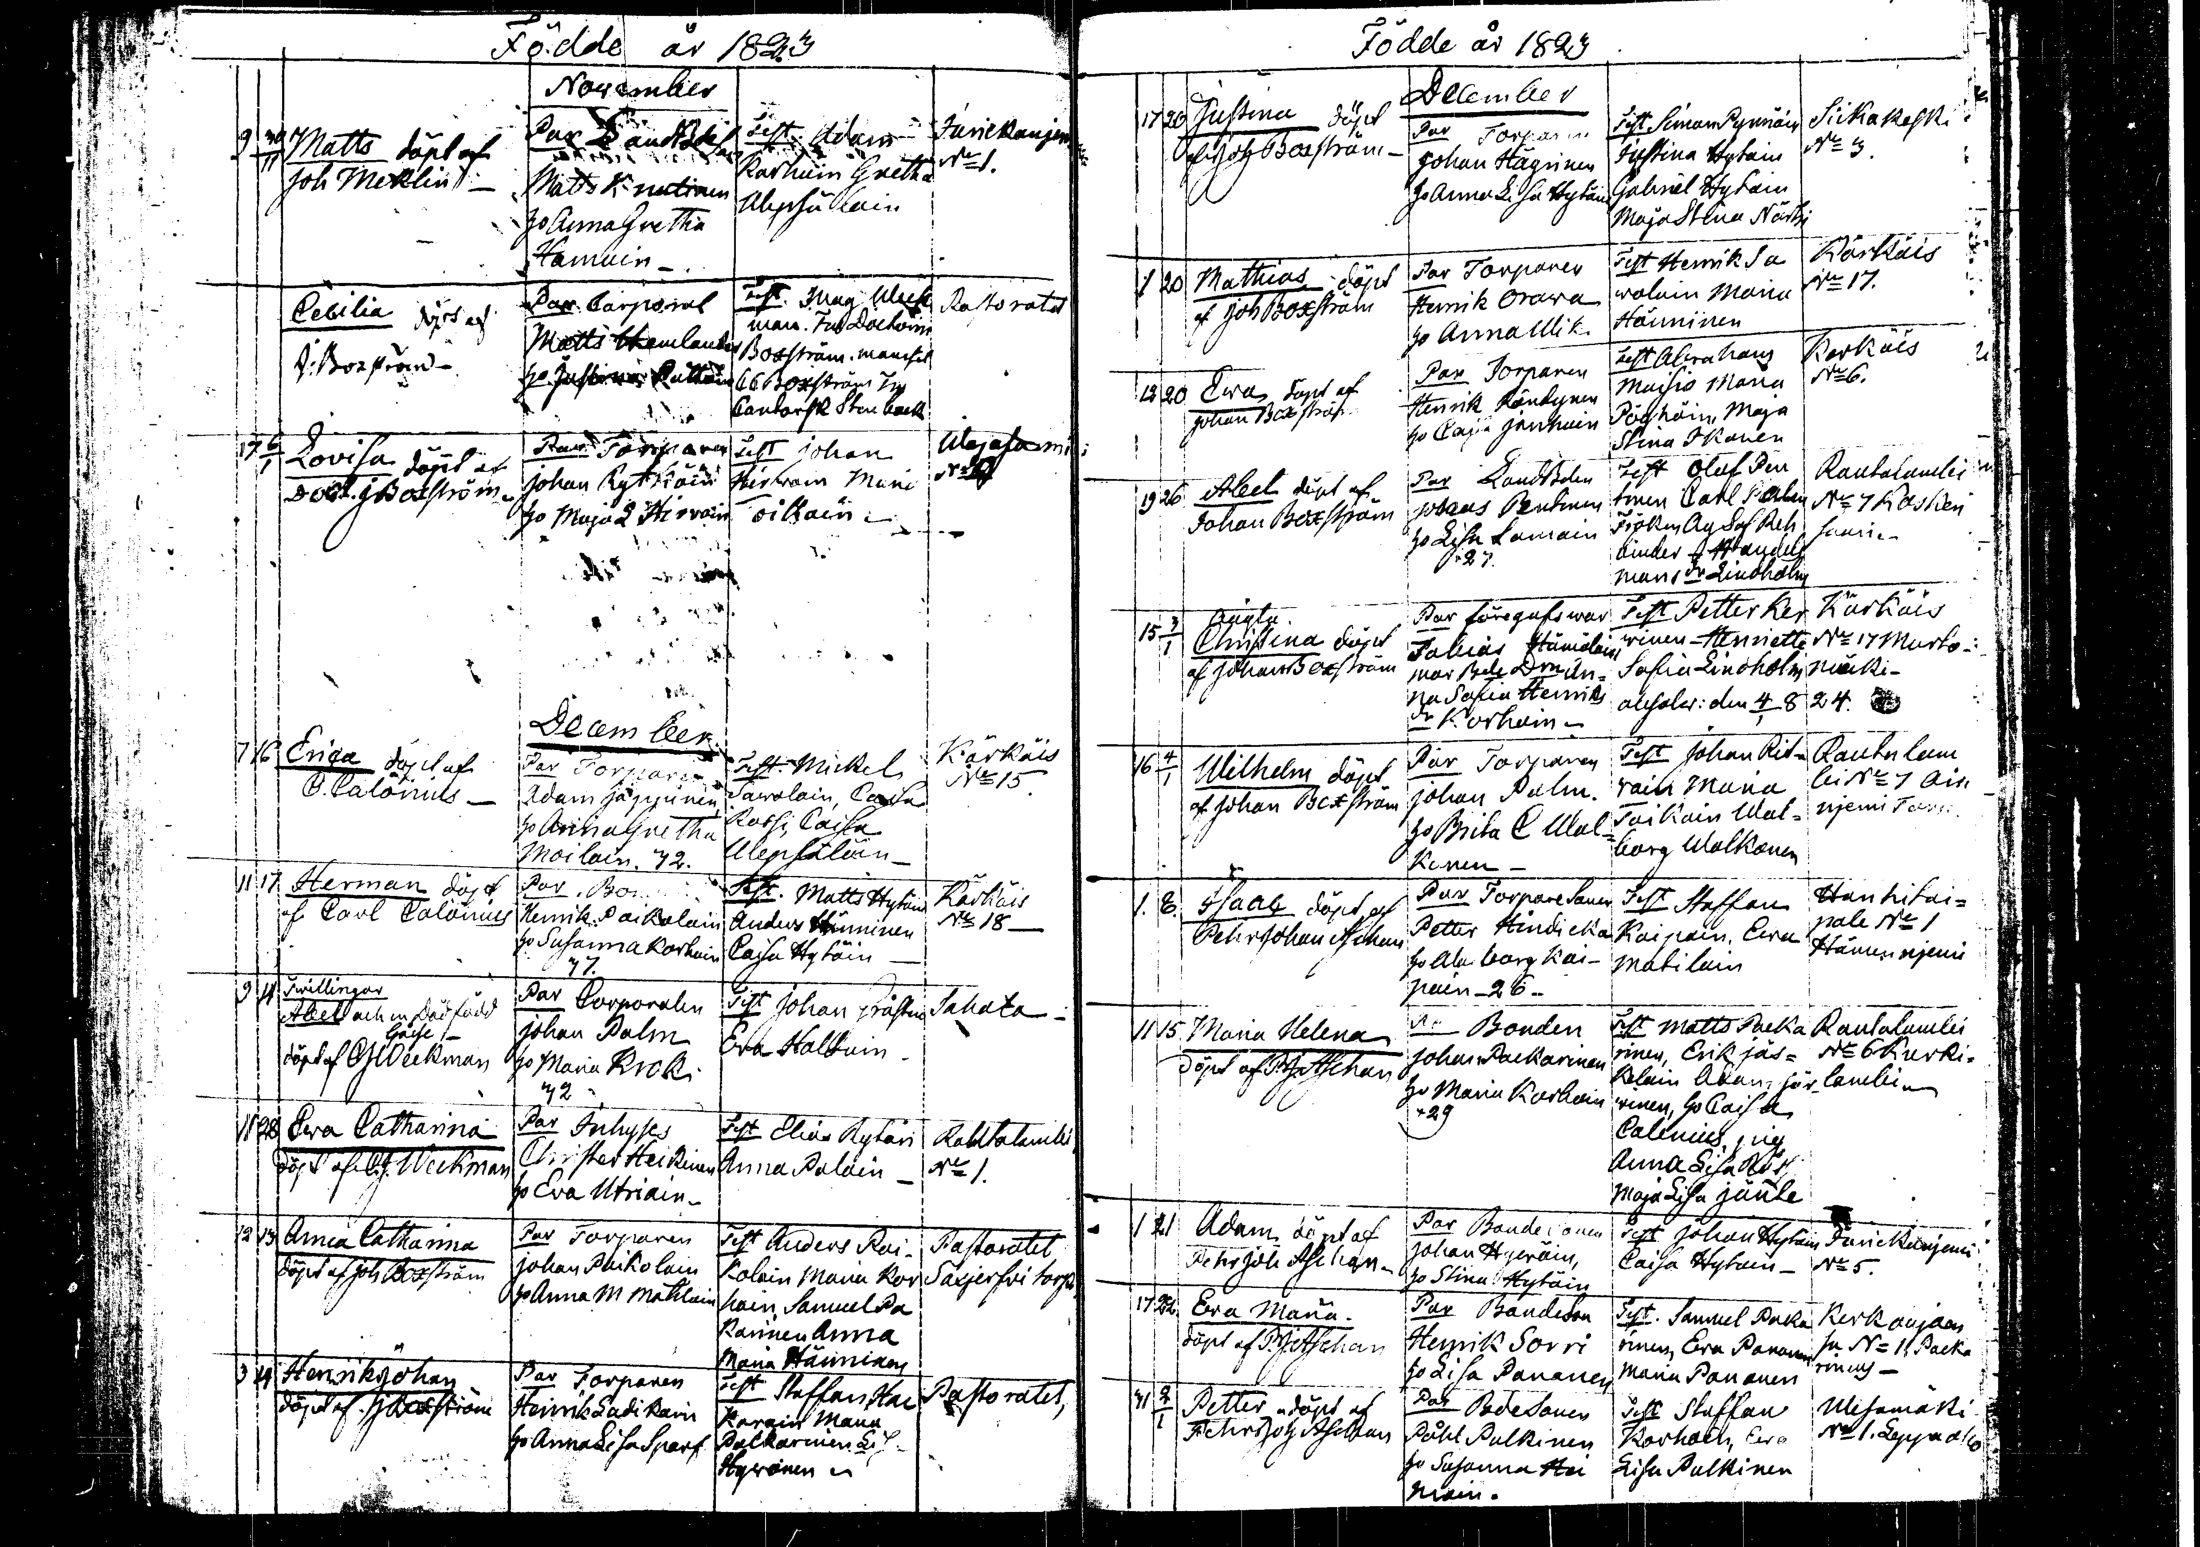 Födde år 1823
November
9 30/11 Matts döpt af
Joh Meklin
Par Landtbd
Matts Knutinen
ho Anna Gretha
Hamuin
Test Adam
Korhuin Gretha
Ulepsälain
Fänickanjem
No 1.
Cecilia döpt af
J. Boxström
Par Carporal
Matts Hamlander
ho Justina Rälläin
Test. Mag Week
man. Fru Doctorin
Boxström. mamsel
Boxström
Cantorsk Stenback
Pastoratet
17 6/1 Lovisa döpt af
Doct. J Boxström
Par Torparen
Johan Rytkäin
ho Maja L Hirvoin
Test Johan
Hirvoin Maria
Toikain
No
December
7 16 Erica döpt af
C. Calonius
Par Torparen
Adam Jäppinen
ho Anna Gretha
Moilain. 42.
Test. Mickel
Savolain, Caisa
Rossi, Caisa
Ulepsäläin
Kärkäis
No 15.
11 17 Herman döpt
af Carl Calonius
Par. Bo
Henrik Paikolain
ho Susanna Korhain
47.
Test. Matts Hytäin
Anders Hänninen
Caisa Hytäin
Kärkäis
No 18
9 11 Twillingar
Abel och en Dödfödd
Gosse
döpt af CJ Weekman
Par Corporalen
Johan Palm
ho Maria Krok
42
Test Johan
Eva Haltain
Sahala
18 28 Ewa Catharina
döpt af CJ. Weekman
Par Inhyses
Christer Heikinen
ho Eva Utriain
Test Elias Rytäin
Anna Palain
Rautalambi
No 1.
12 13 Anna Catharina
döpt af Joh Boxström
Par Torparen
Johan Paikolain
ho Anna M Matilain
Test Anders Pai-
kolain Maria Kor
hain, Samuel Pa
karinen Anna
Maria Hänninen
Pastoratet
torp
3 14 Henrik Johan
döpt af J Boxström
Par Torparen
Henrik Ladikain
ho Anna Lisa Sparf
Test Staffan Kac
karain Maria
Palkarinen Lis
Hyvönen
Pastoratet,
Födde år 1823
December
17 20 Justina döpt
af Joh Boxström
Par Torparen
Johan Hägrinen
ho Anna Lisa Hytäin
Test Simon Pynnäin
Justina Hytain
Gabriel Hytain
Maja Stina Närhi
Sickakoski
No 3.
1 20 Mathias döpt
af Joh Boxström
Par Torparen
Henrik Orawa
ho Anna Wik
Test Henrik Sa
wolain Maria
Hänninen
Kärkäis
No 17.
13 20 Ewa döpt af
Johan Boxström
Par Torparen
Henrik Röndynen
ho Caja Jänhäin
Test Abraham
Muisio Maria
Pöghöin, Maja
Stina Ikonen
Kerkäis
No 6.
19 26 Abel döpt af
Johan Boxström
Par Landtbden
Johans Pentinen
ho Lisa Lamain
27.
Test Olof Pen
tinen Carl
Fröken Aug Sof Reh
binder, Handels
mans dr Lindholm
Rautalambi
No 7 Kosken
saari
15 3/1 Oägta
Christina döpt
af Johan Boxström
Par föregifs war
Tobias Hämäläin
mor Bde Drn An-
na Sofia Henriks
dr Korhain
Test Petter Ker
vinen Henriette
Sofia Lindholm
absolv: den 4/1 824.
Kärkäis
No 17 Murto-
mäki
16 4/1 Wilhelm döpt
af Johan Boxström
Par Torparen
Johan Palm.
ho Brita C Wal=
konen
Test Johan Rit-
vain Maria
Toikain Wal=
borg Walkonen
Rautalam
bi No 7
njemi Torp
1. 8. Isaac döpt af
Pehr Johan Aschan
Par Torparesonen
Petter Hindicka
ho Walborg Kai-
pain 26
Test Staffan
Kaipain, Eva
Matilain
Hanhitai=
pale No 1
Hämennjemi
11 15 Maria Helena
döpt af PJ Aschan
Par Bonden
Johan Packarinen
ho Maria Korhain
29
Test Matts Packa
rinen, Erik Jäs=
kelain Adam Jär
vinen, ho Caisa
Calenius, pig
Anna Lisa
Maja Lisa Jänte
Rautalambi
No 6 Kurki-
lambi
1 21 Adam döpt af
Pehr Joh Aschan
Par Bondesonen
Johan Hyväin,
ho Stina Hytäin
Test Johan Hytain
Caisa Hytain
Fänickanjemi
No 5.
17 22 Ewa Maria.
döpt af PJ Aschan
Par Bondeson
Henrik Sorri
ho Lisa Pananen
Test. Samuel Packa
rinen, Eva Pananen
Maria Pananen
Kerkonjoen
su No 11, Packa
rinens
31 2/1 Petter döpt af
Pehr Joh Aschan
Par Bdesonen
Påhl Pulkinen
ho Susanna Hei
noin.
Test Staffan
Korhoin, Eva
Lisa Pulkinen
Utisamäki
No 1. Leppä